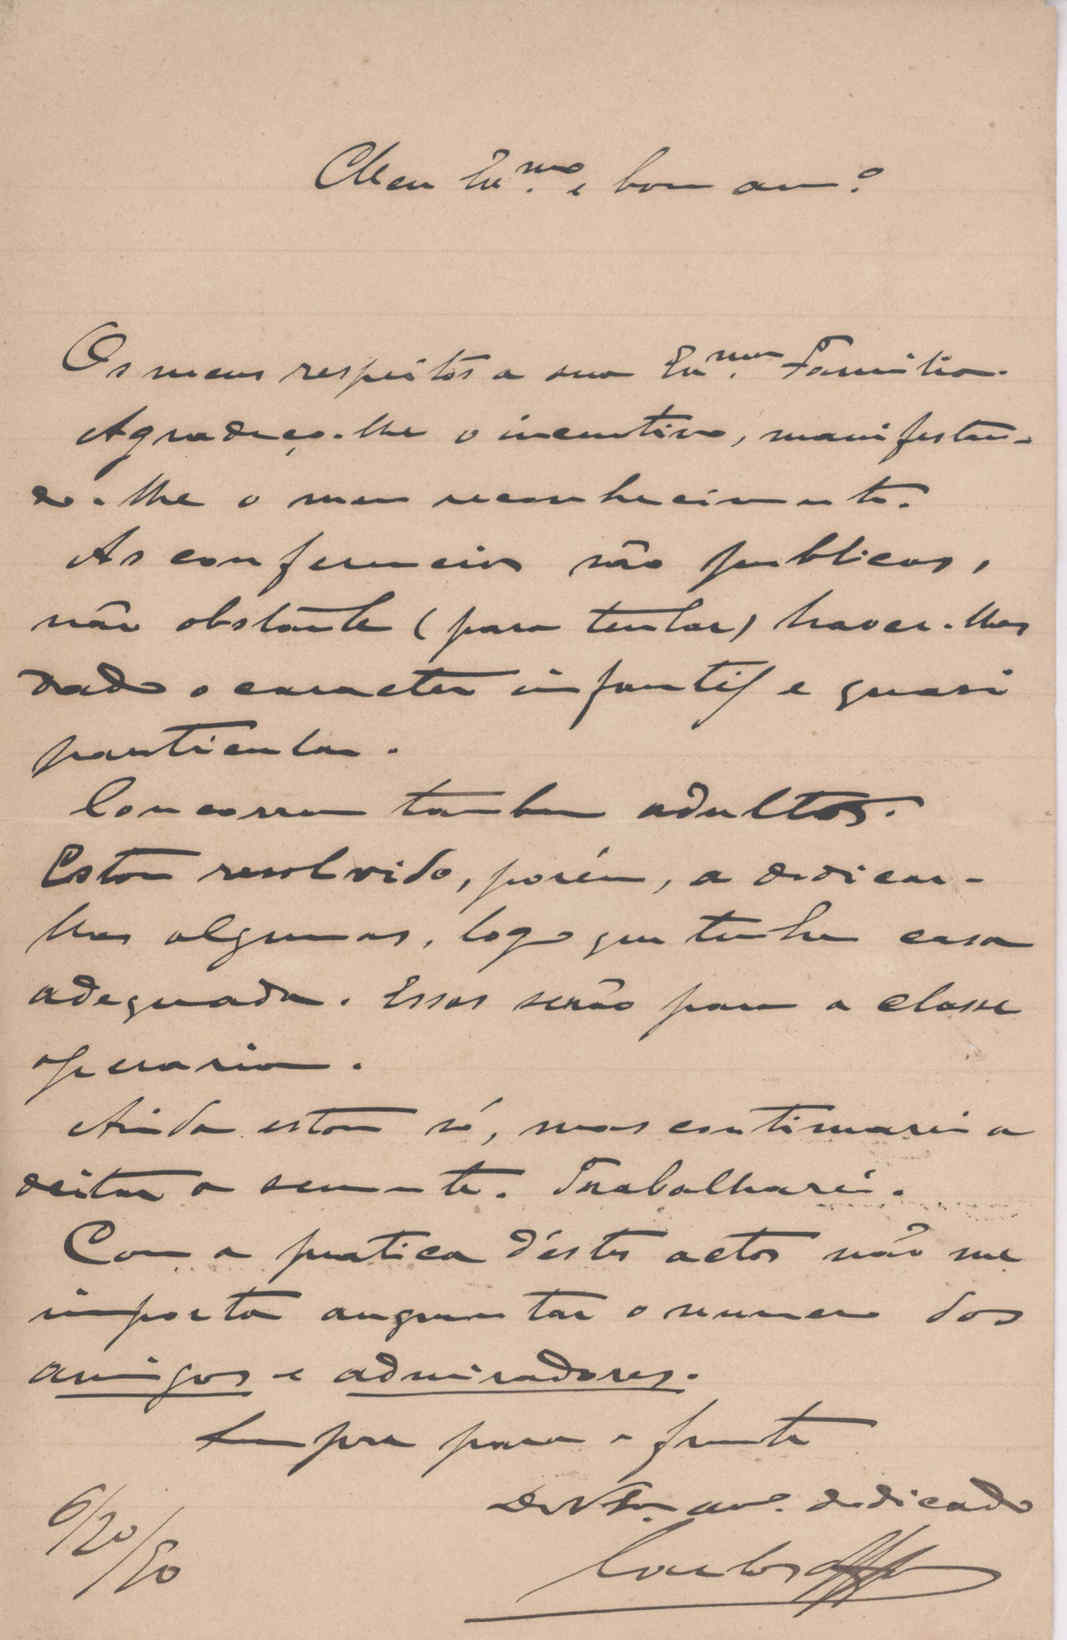 Meu Exmo. e bom amº
Os meus respeitos a sua Exma. Familia.
Agradeço-lhe o incentivo, manifestan-
do-lhe o meu reconhecimento.
As conferencias são publicas,
não obstante (para tentar) haver-lhes
dado o caracter infantil e quasi
particular.
Concorrem tambem adultos.
Estou resolvido, porém, a dedicar-
lhes algumas, logo que tenha casa
adequada. Essas serão para a classe
operaria.
Ainda estou só, mas continuarei a
deitar a semente. Trabalharei.
Com a pratica d'éstes actos não me
importa augmentar o numero dos
amigos e admiradores.
Sempre para a frente
De V. Exa. amo. dedicado
Carlos
6/20/90